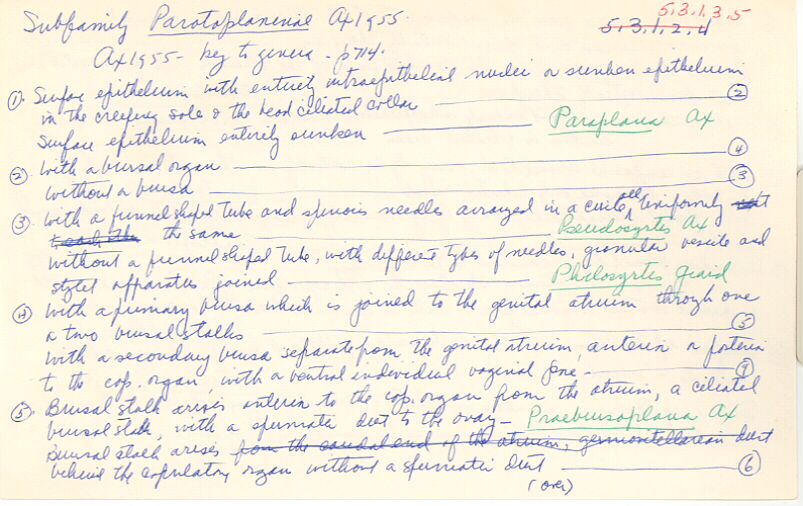 5.3.1.3.5
Subfamily Parotoplaninae Ax 1955. 5.3.1.2.4
Ax 1955 - key to genera - p 714.
① Surface epithelium with entirely intraepithelial nuclei or sunken epithelium
in the creeping sole & the head ciliated collar ②
Surface epithelium entirely sunken Paraplana Ax
② With a bursal organ ④
Without a bursa ③
③ With a funnel shaped tube and spinous needles arranged in a circle, all uniformly
the same Pseudosyrtis Ax
Without a funnel shaped tube, with different types of needles, granular vesicle and
stylet apparatus joined Philosyrtis Giard
④ With a primary bursa which is joined to the genital atrium through one
or two bursal stalks ⑤
With a secondary bursa separate from the genital atrium, anterior or posterior
to the cop. organ, with a ventral individual vaginal pore
⑤ Bursal stalk arises anterior to the cop. organ from the atrium, a ciliated
bursal stalk, with a spermatic duct to the ovary - Praebursoplana Ax
Bursal stalk arises from the caudal end of the atrium, duct
behind the copulatory organ without a spermatic duct ⑥
(over)